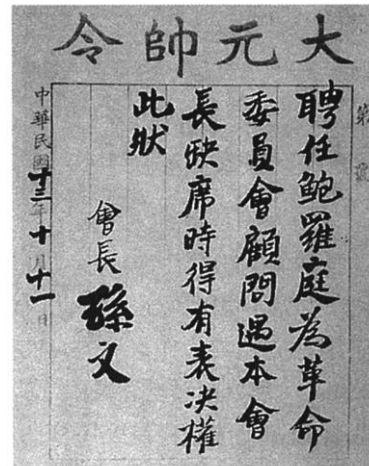 大元帥令
第 號
聘任鮑羅庭為革命
委員會顧問遇本會
長缺席時得有表決權
此狀
會長 孫文
中華民國十三年十月十一日